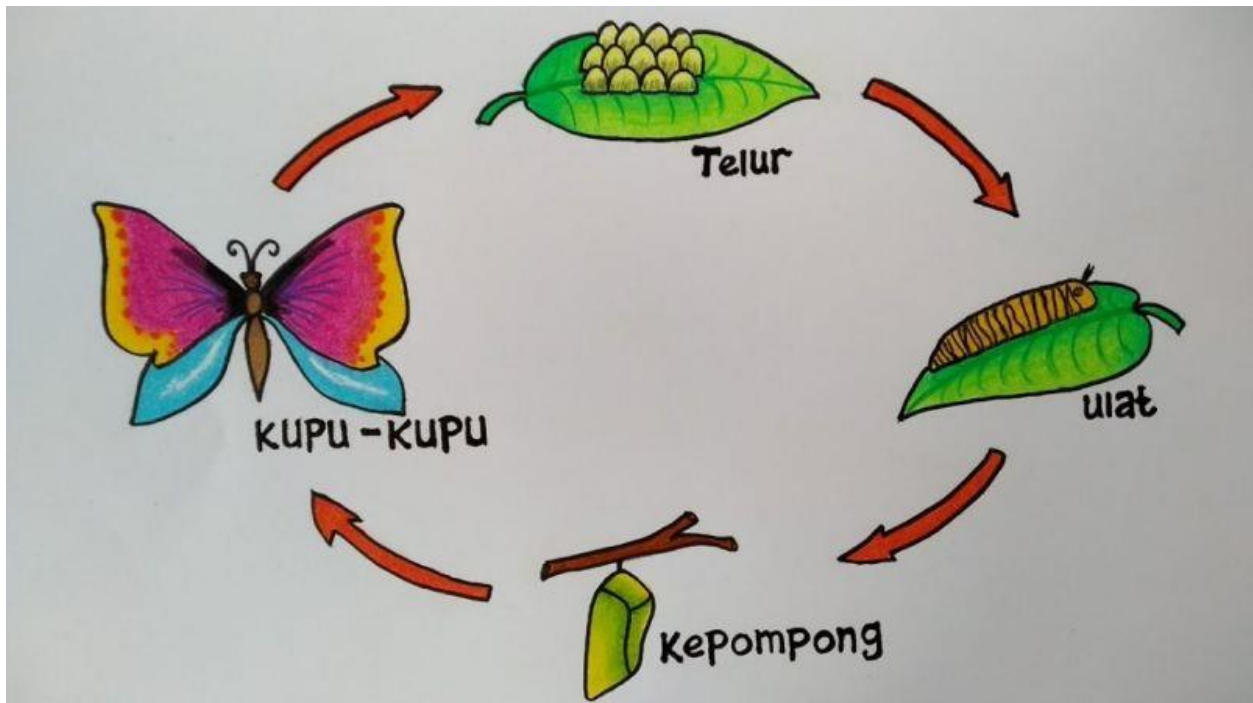 Telur
ulat
Kepompong
KUPU-KUPU